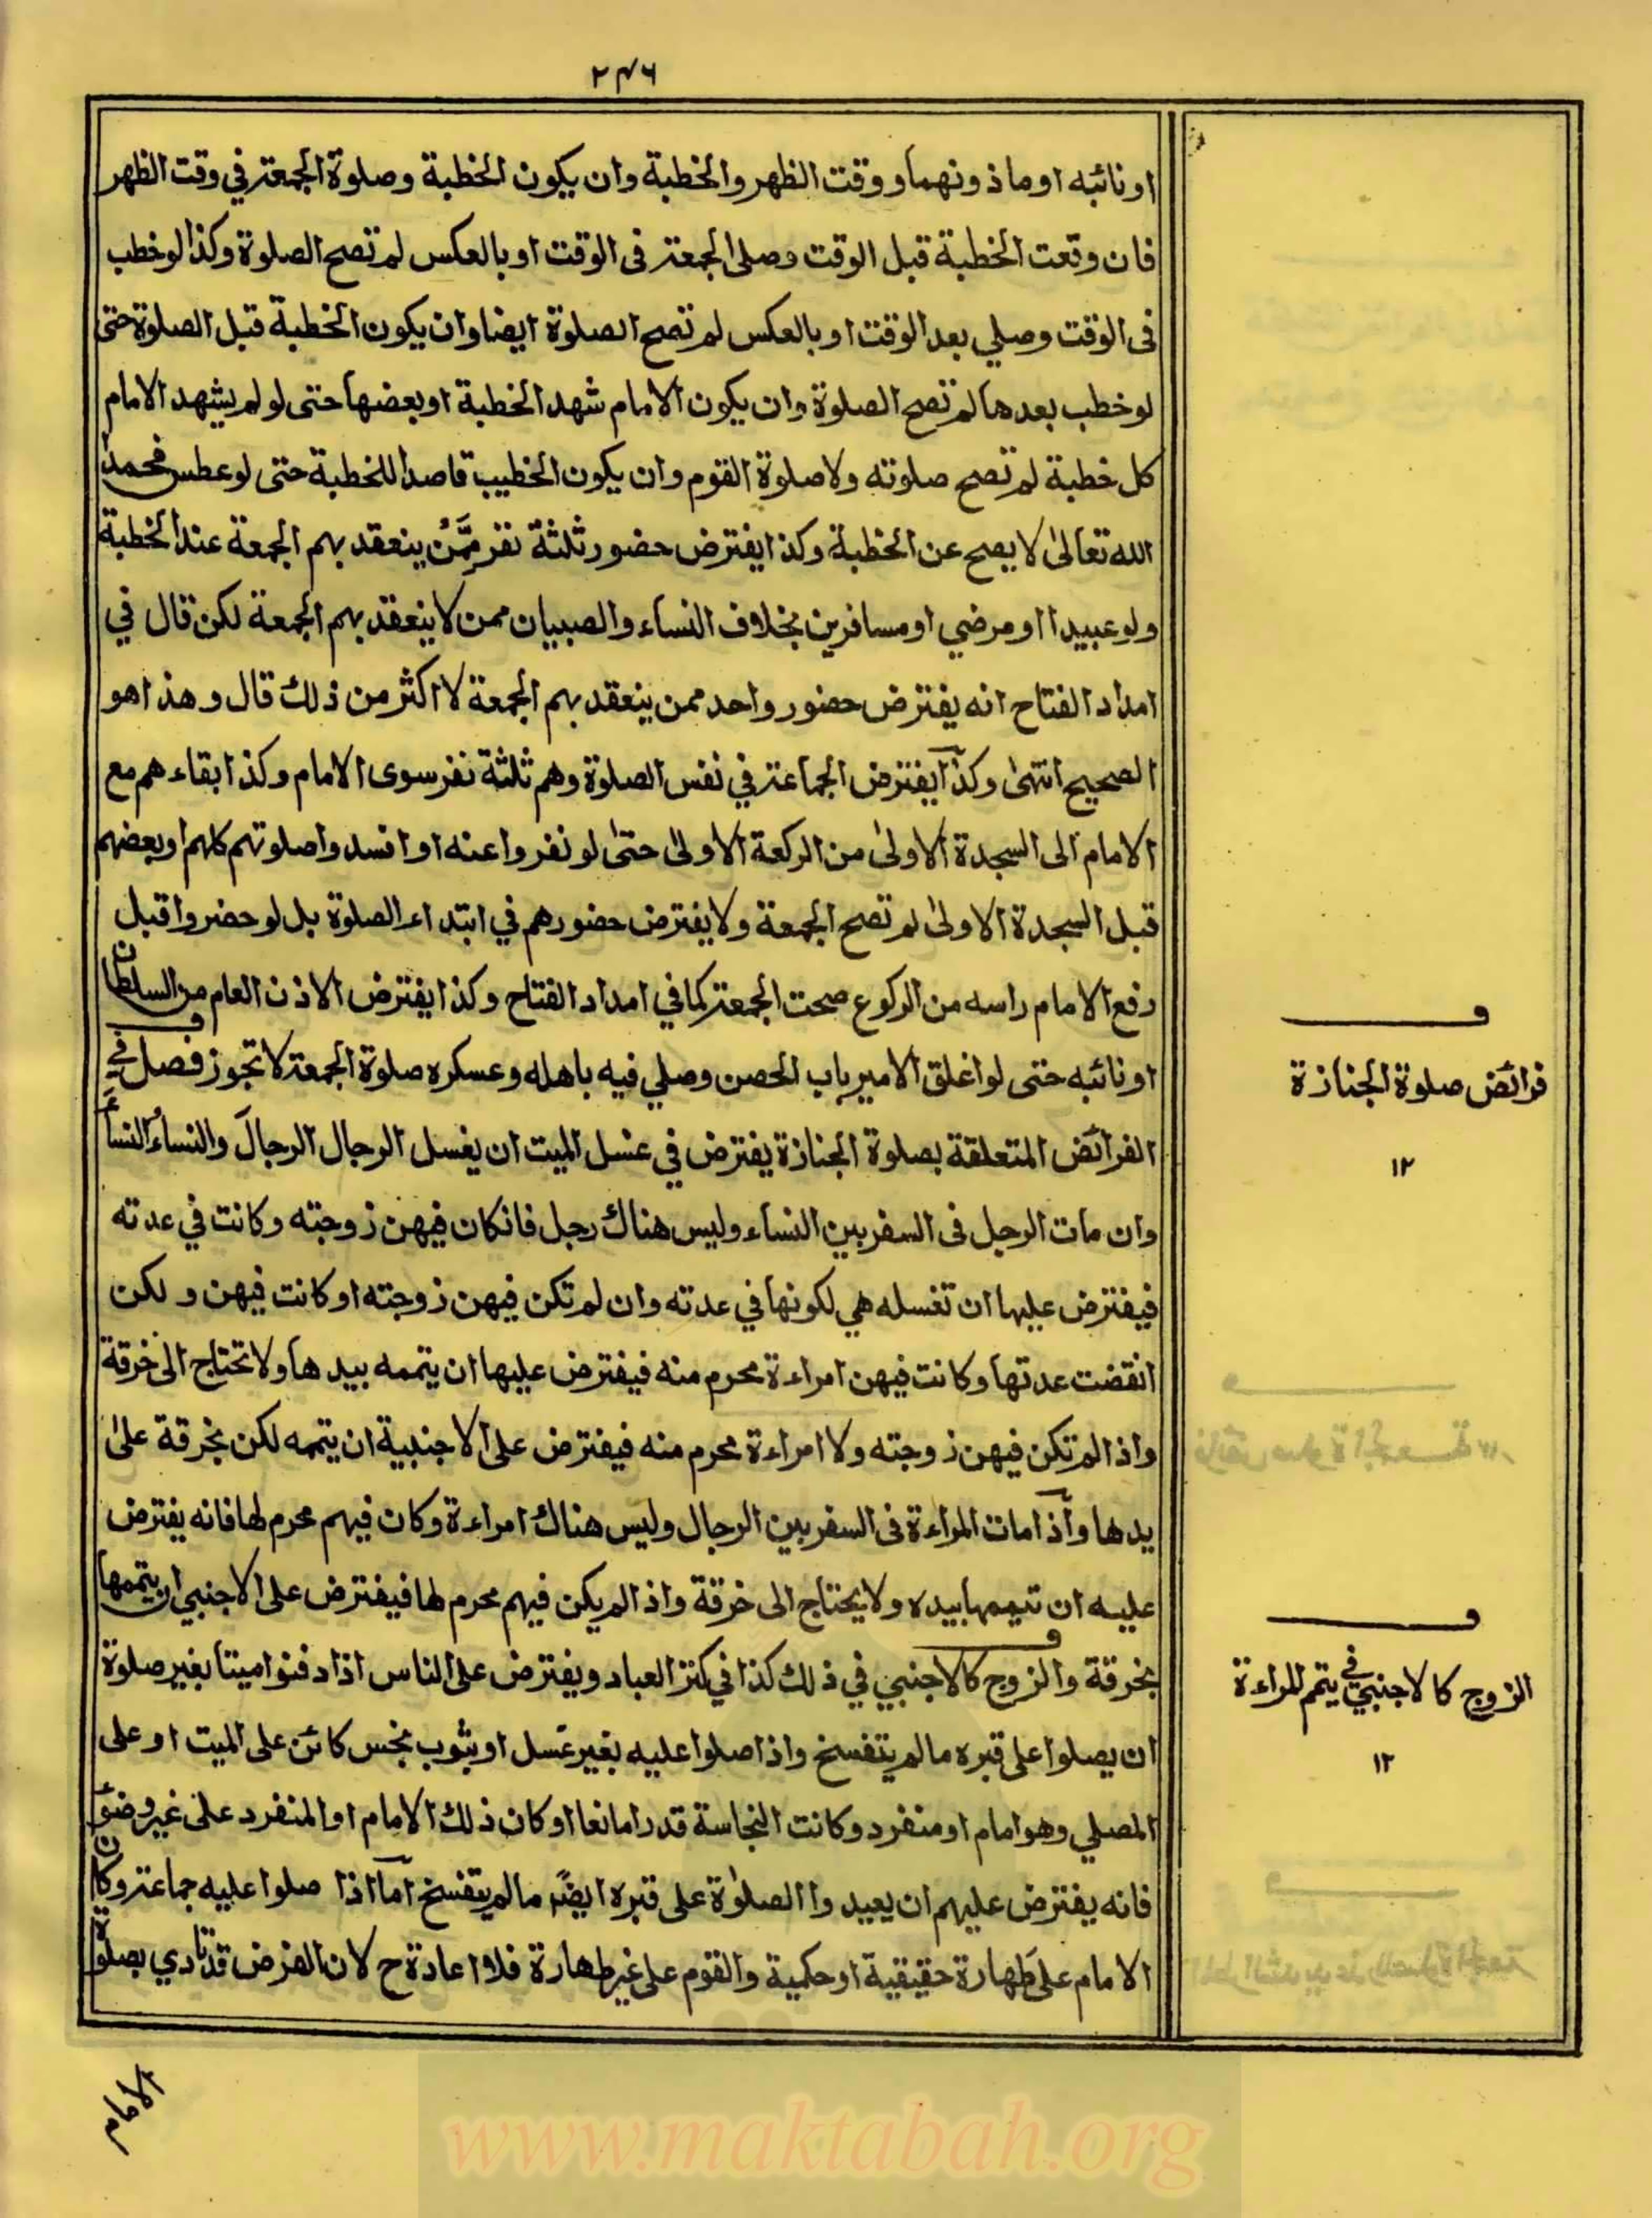 ٢٤٦
او نائبه او ماذونهما و وقت الظهر والخطبة وان يكون الخطبة وصلوة الجمعة في وقت الظهر
فان وقعت الخطبة قبل الوقت وصلى الجمعة فى الوقت او بالعكس لم تصح الصلوة وكذا لو خطب
فى الوقت وصلي بعد الوقت او بالعكس لم تصح الصلوة ايضا وان يكون الخطبة قبل الصلوة حتى
لو خطب بعدها لم تصح الصلوة وان يكون الامام شهد الخطبة او بعضها حتى لو لم يشهد الامام
كل خطبة لم تصح صلوته ولا صلوة القوم وان يكون الخطيب قاصدا للخطبة حتى لو عطس فحمد
الله تعالىٰ لا يصح عن الخطبة وكذا يفترض حضور ثلثة نفر مِمَّنْ ينعقد بهم الجمعة عند الخطبة
ولو عبيدا او مرضي او مسافرين بخلاف النساء والصبيان ممن لا ينعقد بهم الجمعة لكن قال في
امداد الفتاح انه يفترض حضور واحد ممن ينعقد بهم الجمعة لا اكثر من ذلك قال وهذا هو
الصحيح انتهىٰ وكذا يفترض الجماعة في نفس الصلوة وهم ثلثة نفر سوى الامام وكذا بقاءهم مع
الامام الى السجدة الاولىٰ من الركعة الاولىٰ حتىٰ لو نفروا عنه او افسدوا صلوتهم كلهم او بعضهم
قبل السجدة الاولىٰ لم تصح الجمعة ولا يفترض حضورهم في ابتداء الصلوة بل لو حضروا قبل
رفع الامام راسه من الركوع صحت الجمعة كما في امداد الفتاح وكذا يفترض الاذن العام من السلطان
او نائبه حتى لو اغلق الامير باب الحصن وصلي فيه باهله وعسكره صلوة الجمعة لا تجوز فصل في
الفرائض المتعلقة بصلوة الجنازة يفترض في غسل الميت ان يغسل الرجال الرجالَ والنساءُ النساءَ
وان مات الرجل فى السفر بين النساء وليس هناك رجل فانكان فيهن زوجته وكانت في عدته
فيفترض عليها ان تغسله هي لكونها في عدته وان لم تكن فيهن زوجته او كانت فيهن ولكن
انقضت عدتها وكانت فيهن امراءة محرم منه فيفترض عليها ان يتممه بيدها ولا تحتاج الى خرقة
واذا لم تكن فيهن زوجته ولا امراءة محرم منه فيفترض على الاجنبية ان يتممه لكن بخرقة علىٰ
يدها واذا مات المراءة فى السفر بين الرجال وليس هناك امراءة وكان فيهم محرم لها فانه يفترض
عليه ان تيممها بيده ولا يحتاج الى خرقة واذا لم يكن فيهم محرم لها فيفترض على الاجنبي ان يتممها
بخرقة والزوج كالاجنبي في ذلك كذا في كنز العباد ويفترض على الناس اذا دفنوا ميتا بغير صلوة
ان يصلوا على قبره ما لم يتفسخ واذا صلوا عليه بغير غسل او بثوب نجس كائن على الميت او على
المصلي وهو امام او منفرد وكانت النجاسة قدرا مانعا او كان ذلك الامام او المنفرد علىٰ غير وضوء
فانه يفترض عليهم ان يعيدوا الصلوٰة على قبره ايضًا ما لم يتفسخ اما اذا صلوا عليه جماعة وكان
الامام على طهارة حقيقية او حكمية والقوم على غير طهارة فلا اعادة ح لان الفرض قد تادي بصلوة
الامام
فرائض صلوة الجنازة
١٢
الزوج كالاجنبي في يتمم المراءة
١٢
www.maktabah.org